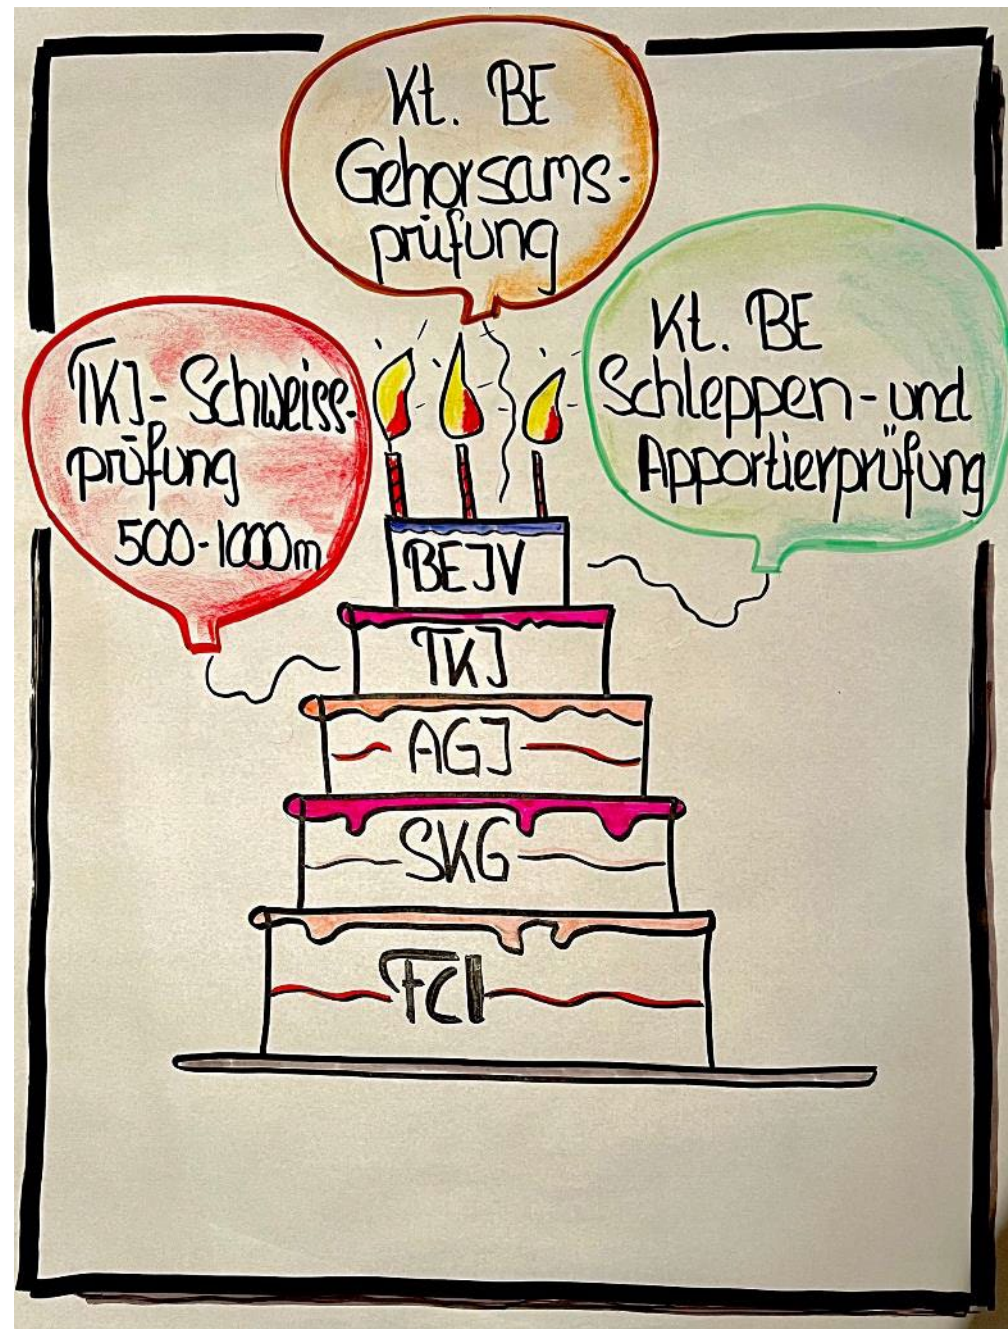 Kt. BE
Gehorsams-
prüfung
TKJ-Schweiss-
prüfung
500-1000m
Kt. BE
Schleppen-und
Apportierprüfung
BEJV
TKJ
AGJ
SKG
FCI